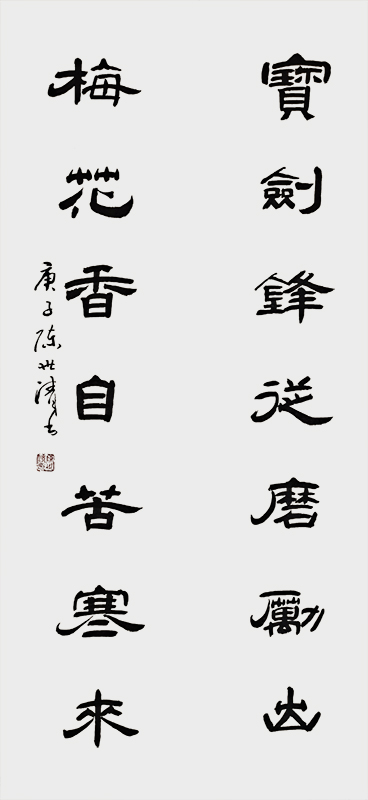 寶劍鋒從磨勵出
梅花香自苦寒來
庚子陈世清书